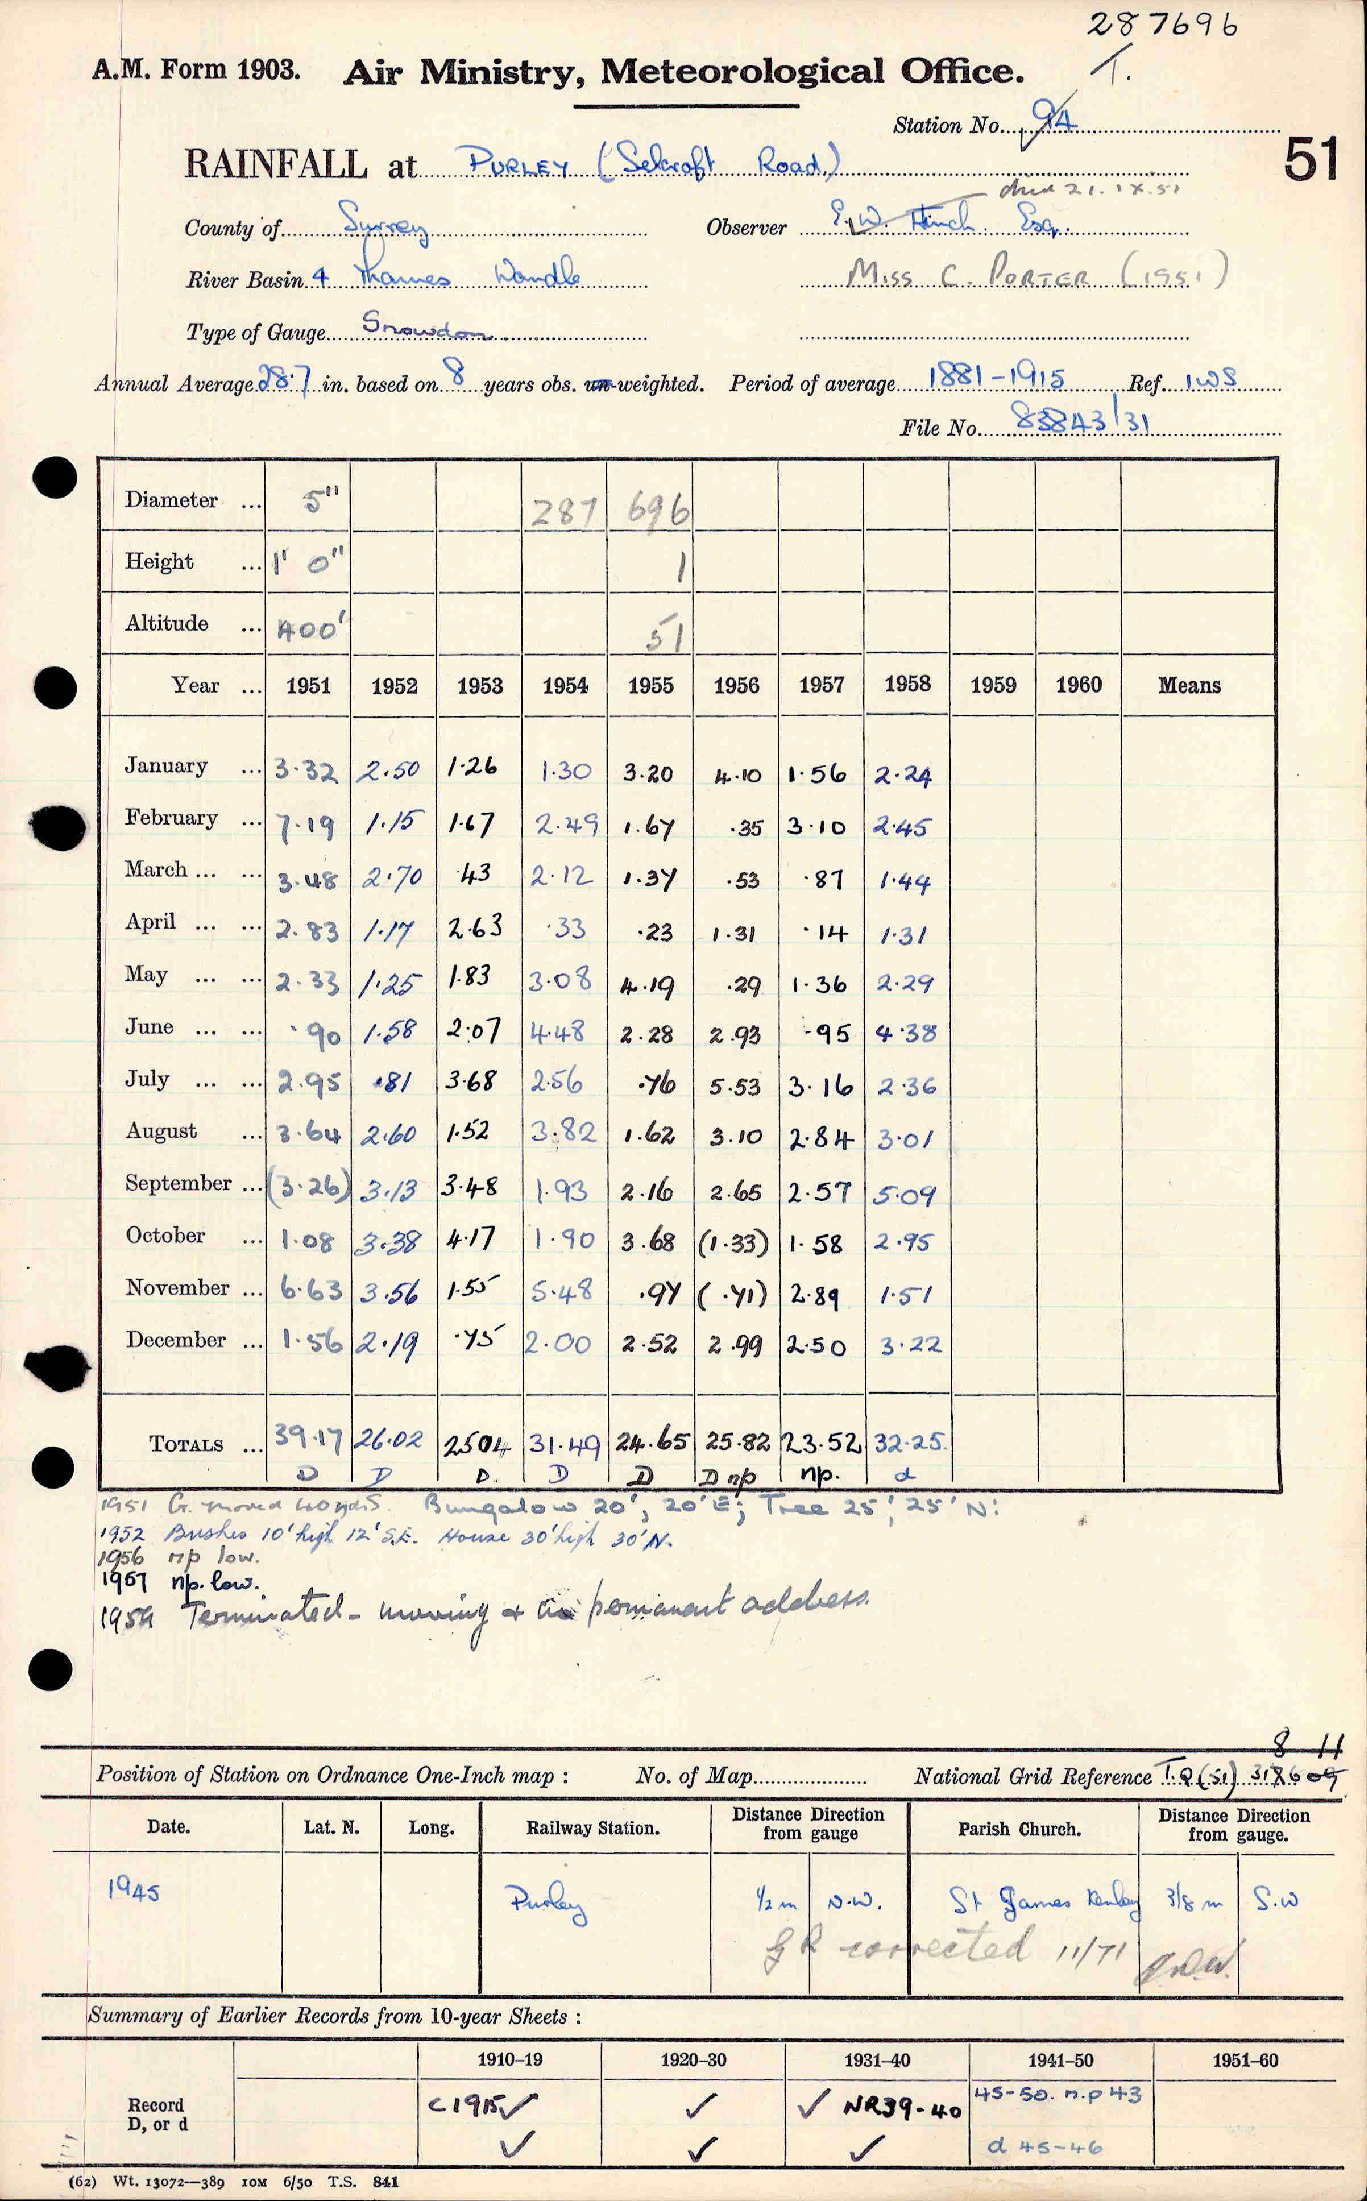 287696
T.
A.M. Form 1903. Air Ministry, Meteorological Office.
Station No. 94
51
RAINFALL at PURLEY (Selcroft Road)
died 21.IX.51
County of Surrey Observer E.W. Finch Esq.
River Basin 4 Thames Wandle MISS C. PORTER (1951)
Type of Gauge Snowdon
Annual Average 28.7 in. based on 8 years obs. un-weighted. Period of average 1881-1915 Ref. IWS
File No. 83843/31
Diameter ... 5" 287 696
Height ... 1' 0" 1
Altitude ... 400' 51
Year ... 1951 1952 1953 1954 1955 1956 1957 1958 1959 1960 Means
January ... 3.32 2.50 1.26 1.30 3.20 4.10 1.56 2.24
February ... 7.19 1.15 1.67 2.49 1.67 .35 3.10 2.45
March ... ... 3.48 2.70 .43 2.12 1.37 .53 .87 1.44
April ... ... 2.83 1.17 2.63 .33 .23 1.31 .14 1.31
May ... ... 2.33 1.25 1.83 3.08 4.19 .29 1.36 2.29
June ... ... .90 1.58 2.07 4.48 2.28 2.93 .95 4.38
July ... ... 2.95 .81 3.68 2.56 .76 5.53 3.16 2.36
August ... 3.64 2.60 1.52 3.82 1.62 3.10 2.84 3.01
September ... (3.26) 3.13 3.48 1.93 2.16 2.65 2.57 5.09
October ... 1.08 3.38 4.17 1.90 3.68 (1.33) 1.58 2.95
November ... 6.63 3.56 1.55 5.48 .97 (.71) 2.89 1.51
December ... 1.56 2.19 .75 2.00 2.52 2.99 2.50 3.22
TOTALS ... 39.17 26.02 25.04 31.49 24.65 25.82 23.52 32.25
D D D. D D D np np. d
1951 G. moved 40 yds S. Bungalow 20', 20' E; Tree 25', 25' N:
1952 Bushes 10' high 12' S.E. House 30' high 30' N.
1956 np low.
1957 np. low.
1959 Terminated - moving + no permanent address.
8 11
Position of Station on Ordnance One-Inch map : No. of Map National Grid Reference T.Q.(51) 317609
Date. Lat. N. Long. Railway Station. Distance Direction from gauge Parish Church. Distance Direction from gauge.
1945 Purley 1/2 m N.W. St James Kenley 3/8 m S.W
G R corrected 11/71
Summary of Earlier Records from 10-year Sheets :
1910–19 1920–30 1931–40 1941–50 1951–60
Record C1915✓ ✓ ✓ NR39-40 45-50. n.p 43
D, or d ✓ ✓ ✓ d 45-46
(62) Wt. 13072—389 10M 6/50 T.S. 841